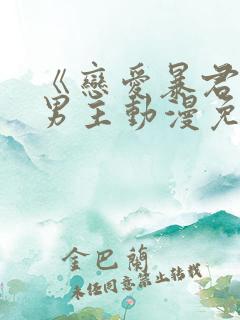 《戀愛暴君
男主動漫免
金巴蘭
未經同意禁止轉載